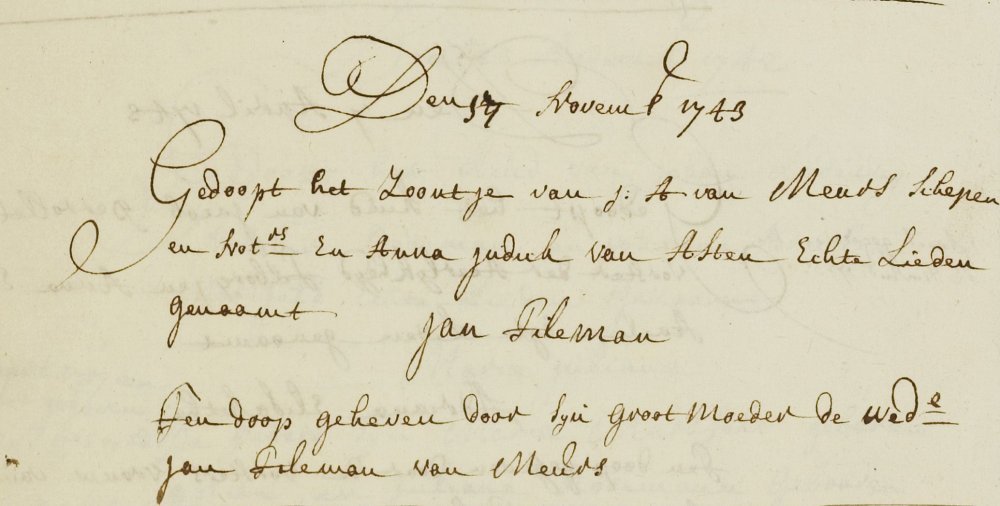 Den 17 Novemb 1743
Gedoopt het Zoontje van J: A van Meurs Schepen
en Not:rs En Anna Judick van Asten Echte Lieden
genaamt Jan Tileman
Ten doop geheven door syn Groot Moeder de wed:e
Jan Tileman van Meurs